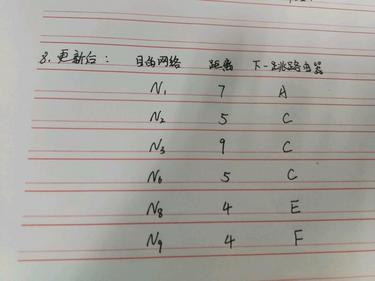 8. 更新后： 目的网络 距离 下一跳路由器
N₁ 7 A
N₂ 5 C
N₃ 9 C
N₆ 5 C
N₈ 4 E
N₉ 4 F